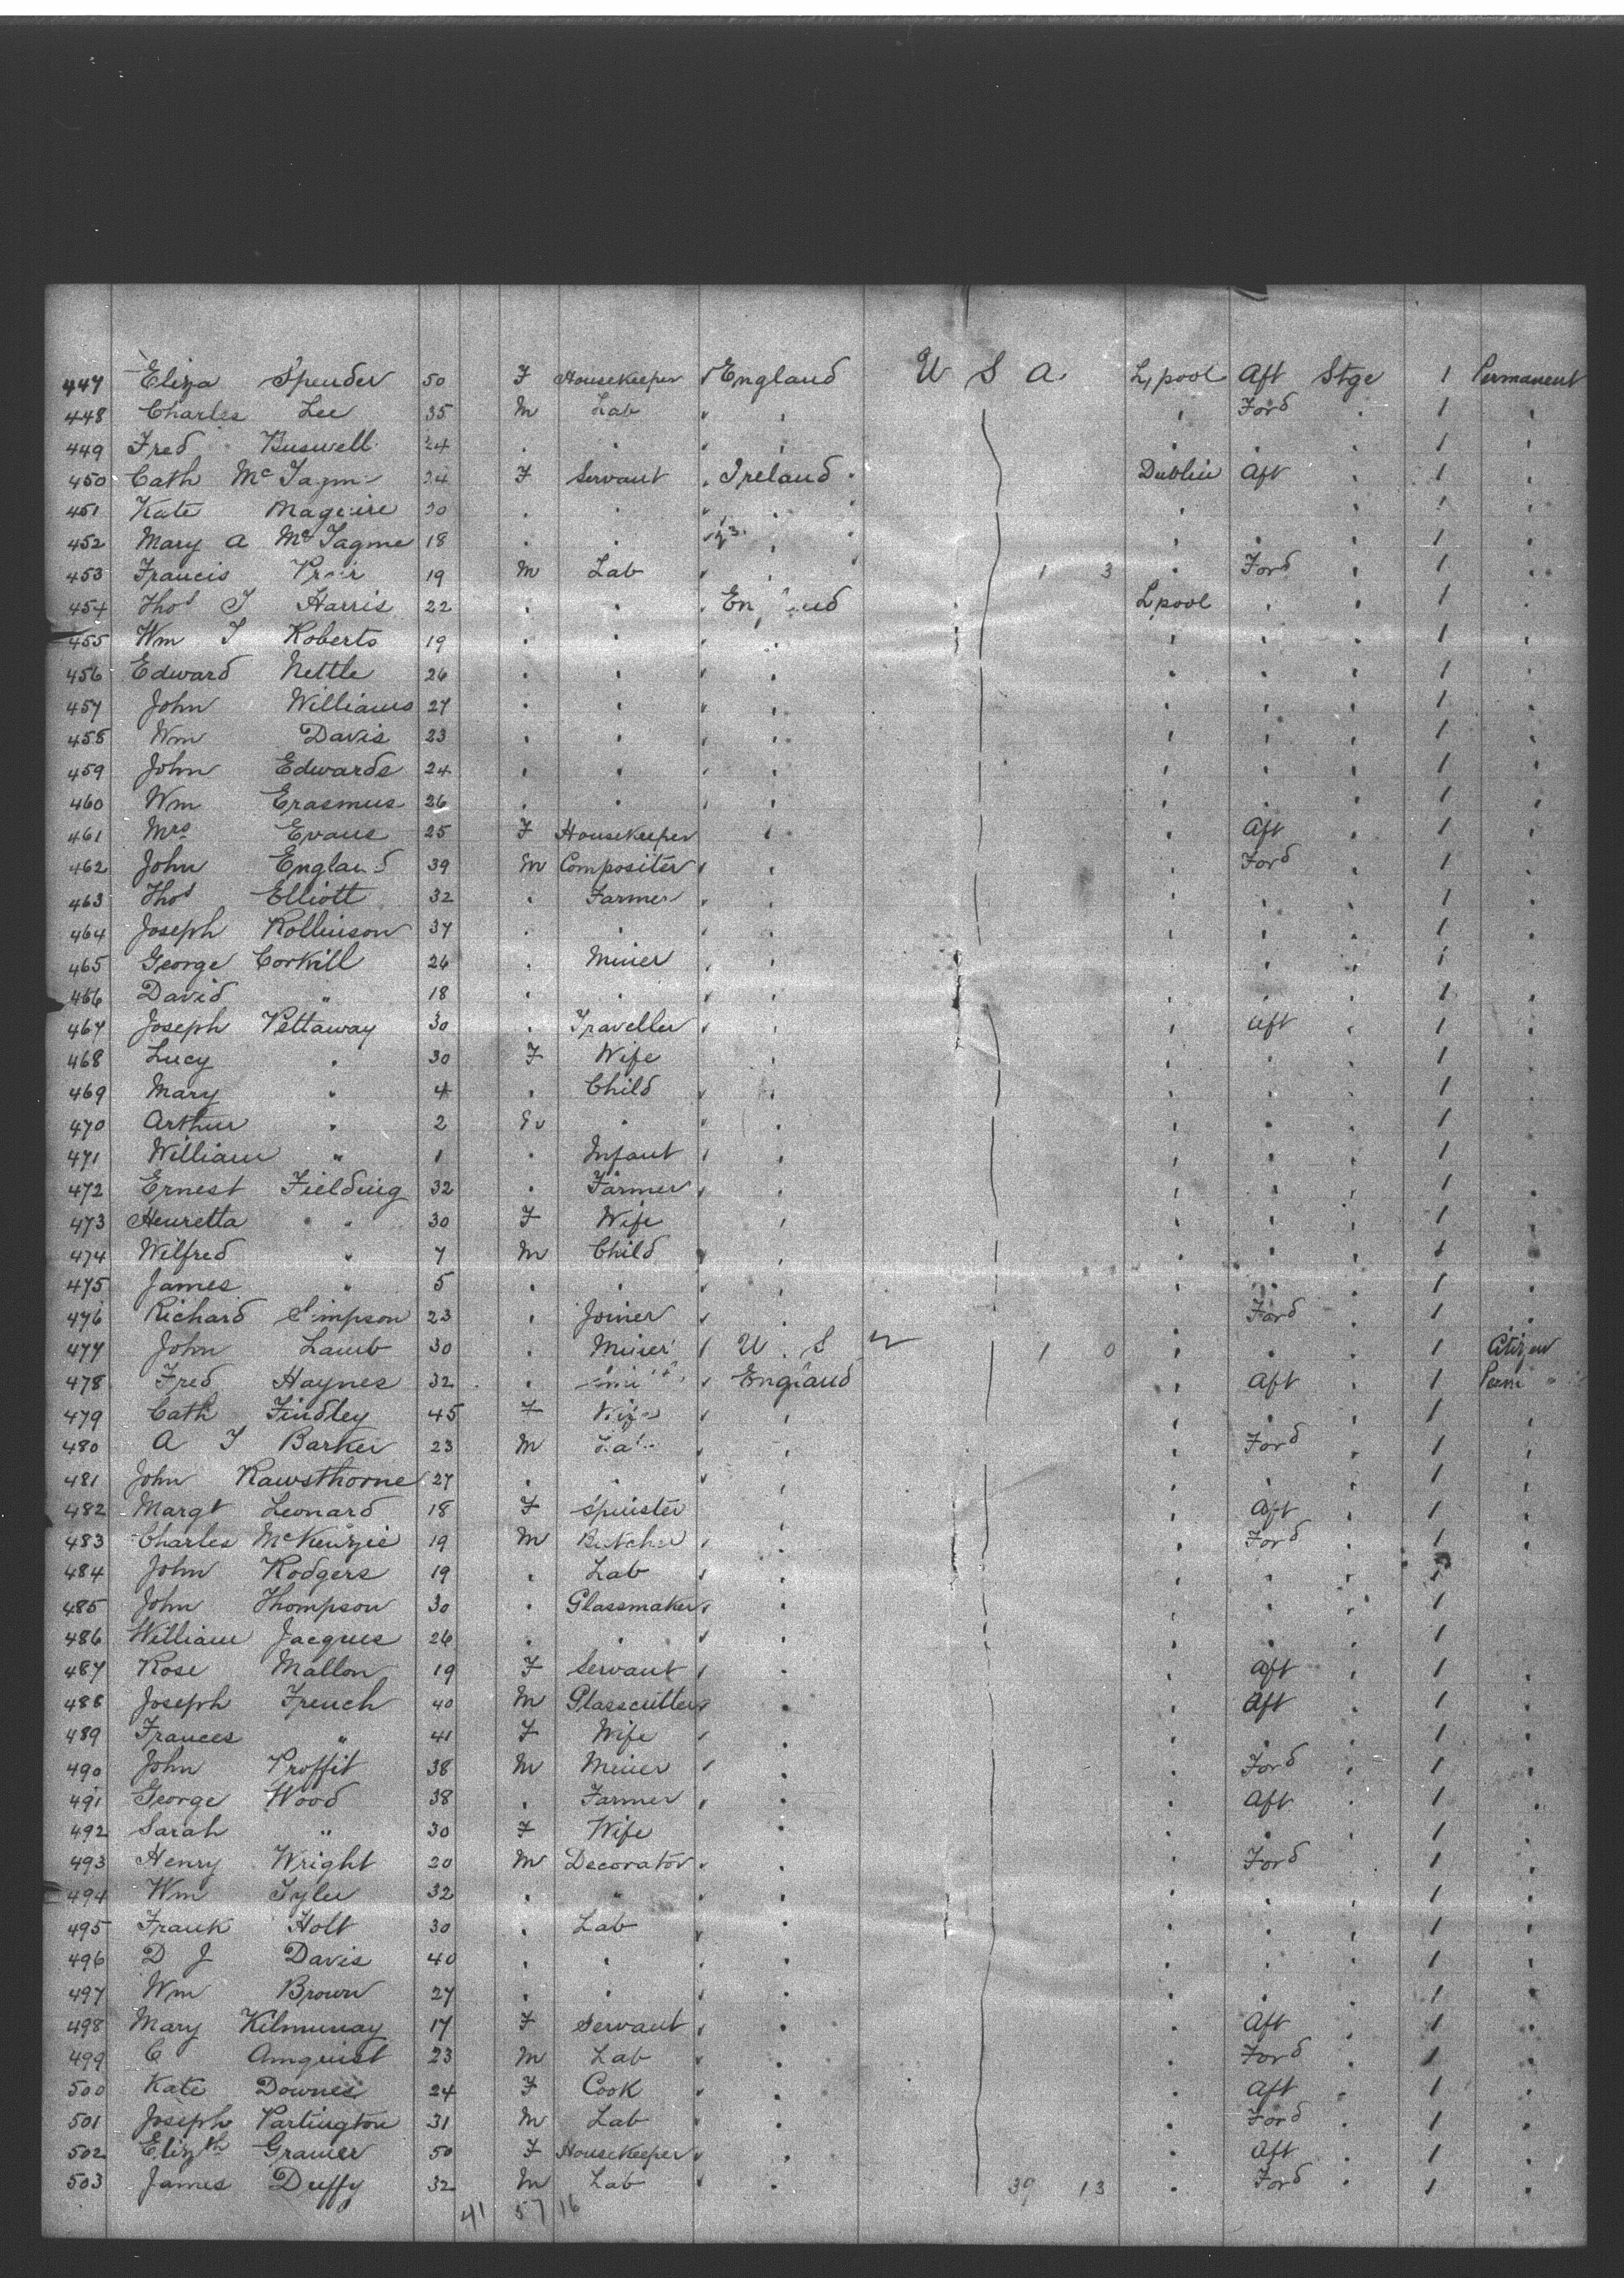 447 Eliza Spender 50 F Housekeeper England U S A L,pool Aft Stge 1 Permanent
448 Charles Lee 35 M Lab " " " Ford " 1 "
449 Fred Buswell 24 " " " " " " " 1 "
450 Cath 24 F Servant Ireland Dublin Aft " 1 "
451 Kate Maguire " " " " " " 1 "
452 Mary A McTagme 18 " " " " " " 1 "
453 Francis 19 M Lab " 1 3 " Ford " 1 "
454 Thos J Harris 22 " " England L,pool " " 1 "
455 Wm J Roberts 19 " " " " " " " 1 "
456 Edward Nettle 26 " " " " " " " 1 "
457 John Williams 27 " " " " " " " 1 "
458 Wm Davis 23 " " " " " " " 1 "
459 John Edwards 24 " " " " " " " 1 "
460 Wm Erasmus 26 " " " " " " " 1 "
461 Mrs Evans 25 F Housekeeper " " Aft " 1 "
462 John England 39 M Compositer " " " Ford " 1 "
463 Thos Elliott 32 " Farmer " " " " " 1 "
464 Joseph Rollinson 37 " " " " " " " 1 "
465 George Corkill 26 " Miner " " " " " 1 "
466 David " 18 " " " " " " " 1 "
467 Joseph Pettaway 30 " Traveller " " " Aft " 1 "
468 Lucy " 30 F Wife " " " " 1 "
469 Mary " 4 " Child " " " " " 1 "
470 Arthur " 2 " " " " " " 1 "
471 William " 1 " Infant " " " " " 1 "
472 Ernest Fielding 32 " Farmer " " " " " 1 "
473 Henretta " 30 F Wife " " " " 1 "
474 Wilfred " 7 M Child " " " " " 1 "
475 James " 5 " " " " " " " 1 "
476 Richard Simpson 23 " Joiner " " " Ford " 1 "
477 John Lamb 30 " Miner U . S 1 0 " " " 1 Citizen
478 Fred Haynes 32 " England " Aft " 1 Perm
479 Cath Findley 45 F Wife " " " " " 1 "
480 A J Barker 23 M Lab " " " Ford " 1 "
481 John Rawsthorne 27 " " " " " " " 1 "
482 Margt Leonard 18 F Spinster " " Aft " 1 "
483 Charles McKenzie 19 M Butcher " " " Ford " 1 "
484 John Rodgers 19 " Lab " " " " " 1
485 John Thompson 30 " Glassmaker " " " " " 1
486 William Jacques 26 " " " " " " " 1
487 Rose Mallon 19 F Servant " " " Aft " 1 "
488 Joseph French 40 M Glasscutter " " " Aft " 1 "
489 Frances " 41 F Wife " " " " " 1 "
490 John Proffit 38 M Miner " " " Ford " 1 "
491 George Wood 38 " Farmer " " " Aft " 1 "
492 Sarah " 30 F Wife " " " " 1 "
493 Henry Wright 20 M Decorator " " " Ford " 1 "
494 Wm Tyler 32 " " " " " " " 1 "
495 Frank Holt 30 " Lab " " " " " 1 "
496 D J Davis 40 " " " " " " " 1 "
497 Wm Brown 27 " " " " " " " 1 "
498 Mary Kilmunay 17 F Servant " " " Aft " 1 "
499 C Amquist 23 M Lab " " " Ford " 1 "
500 Kate Downes 24 F Cook " " " Aft " 1 "
501 Joseph Partington 31 M Lab " " " Ford " 1 "
502 Elizth Gramer 50 F Housekeeper " " " Aft " 1 "
503 James Duffy 32 M Lab " " 39 13 " Ford " 1 "
41 57 16